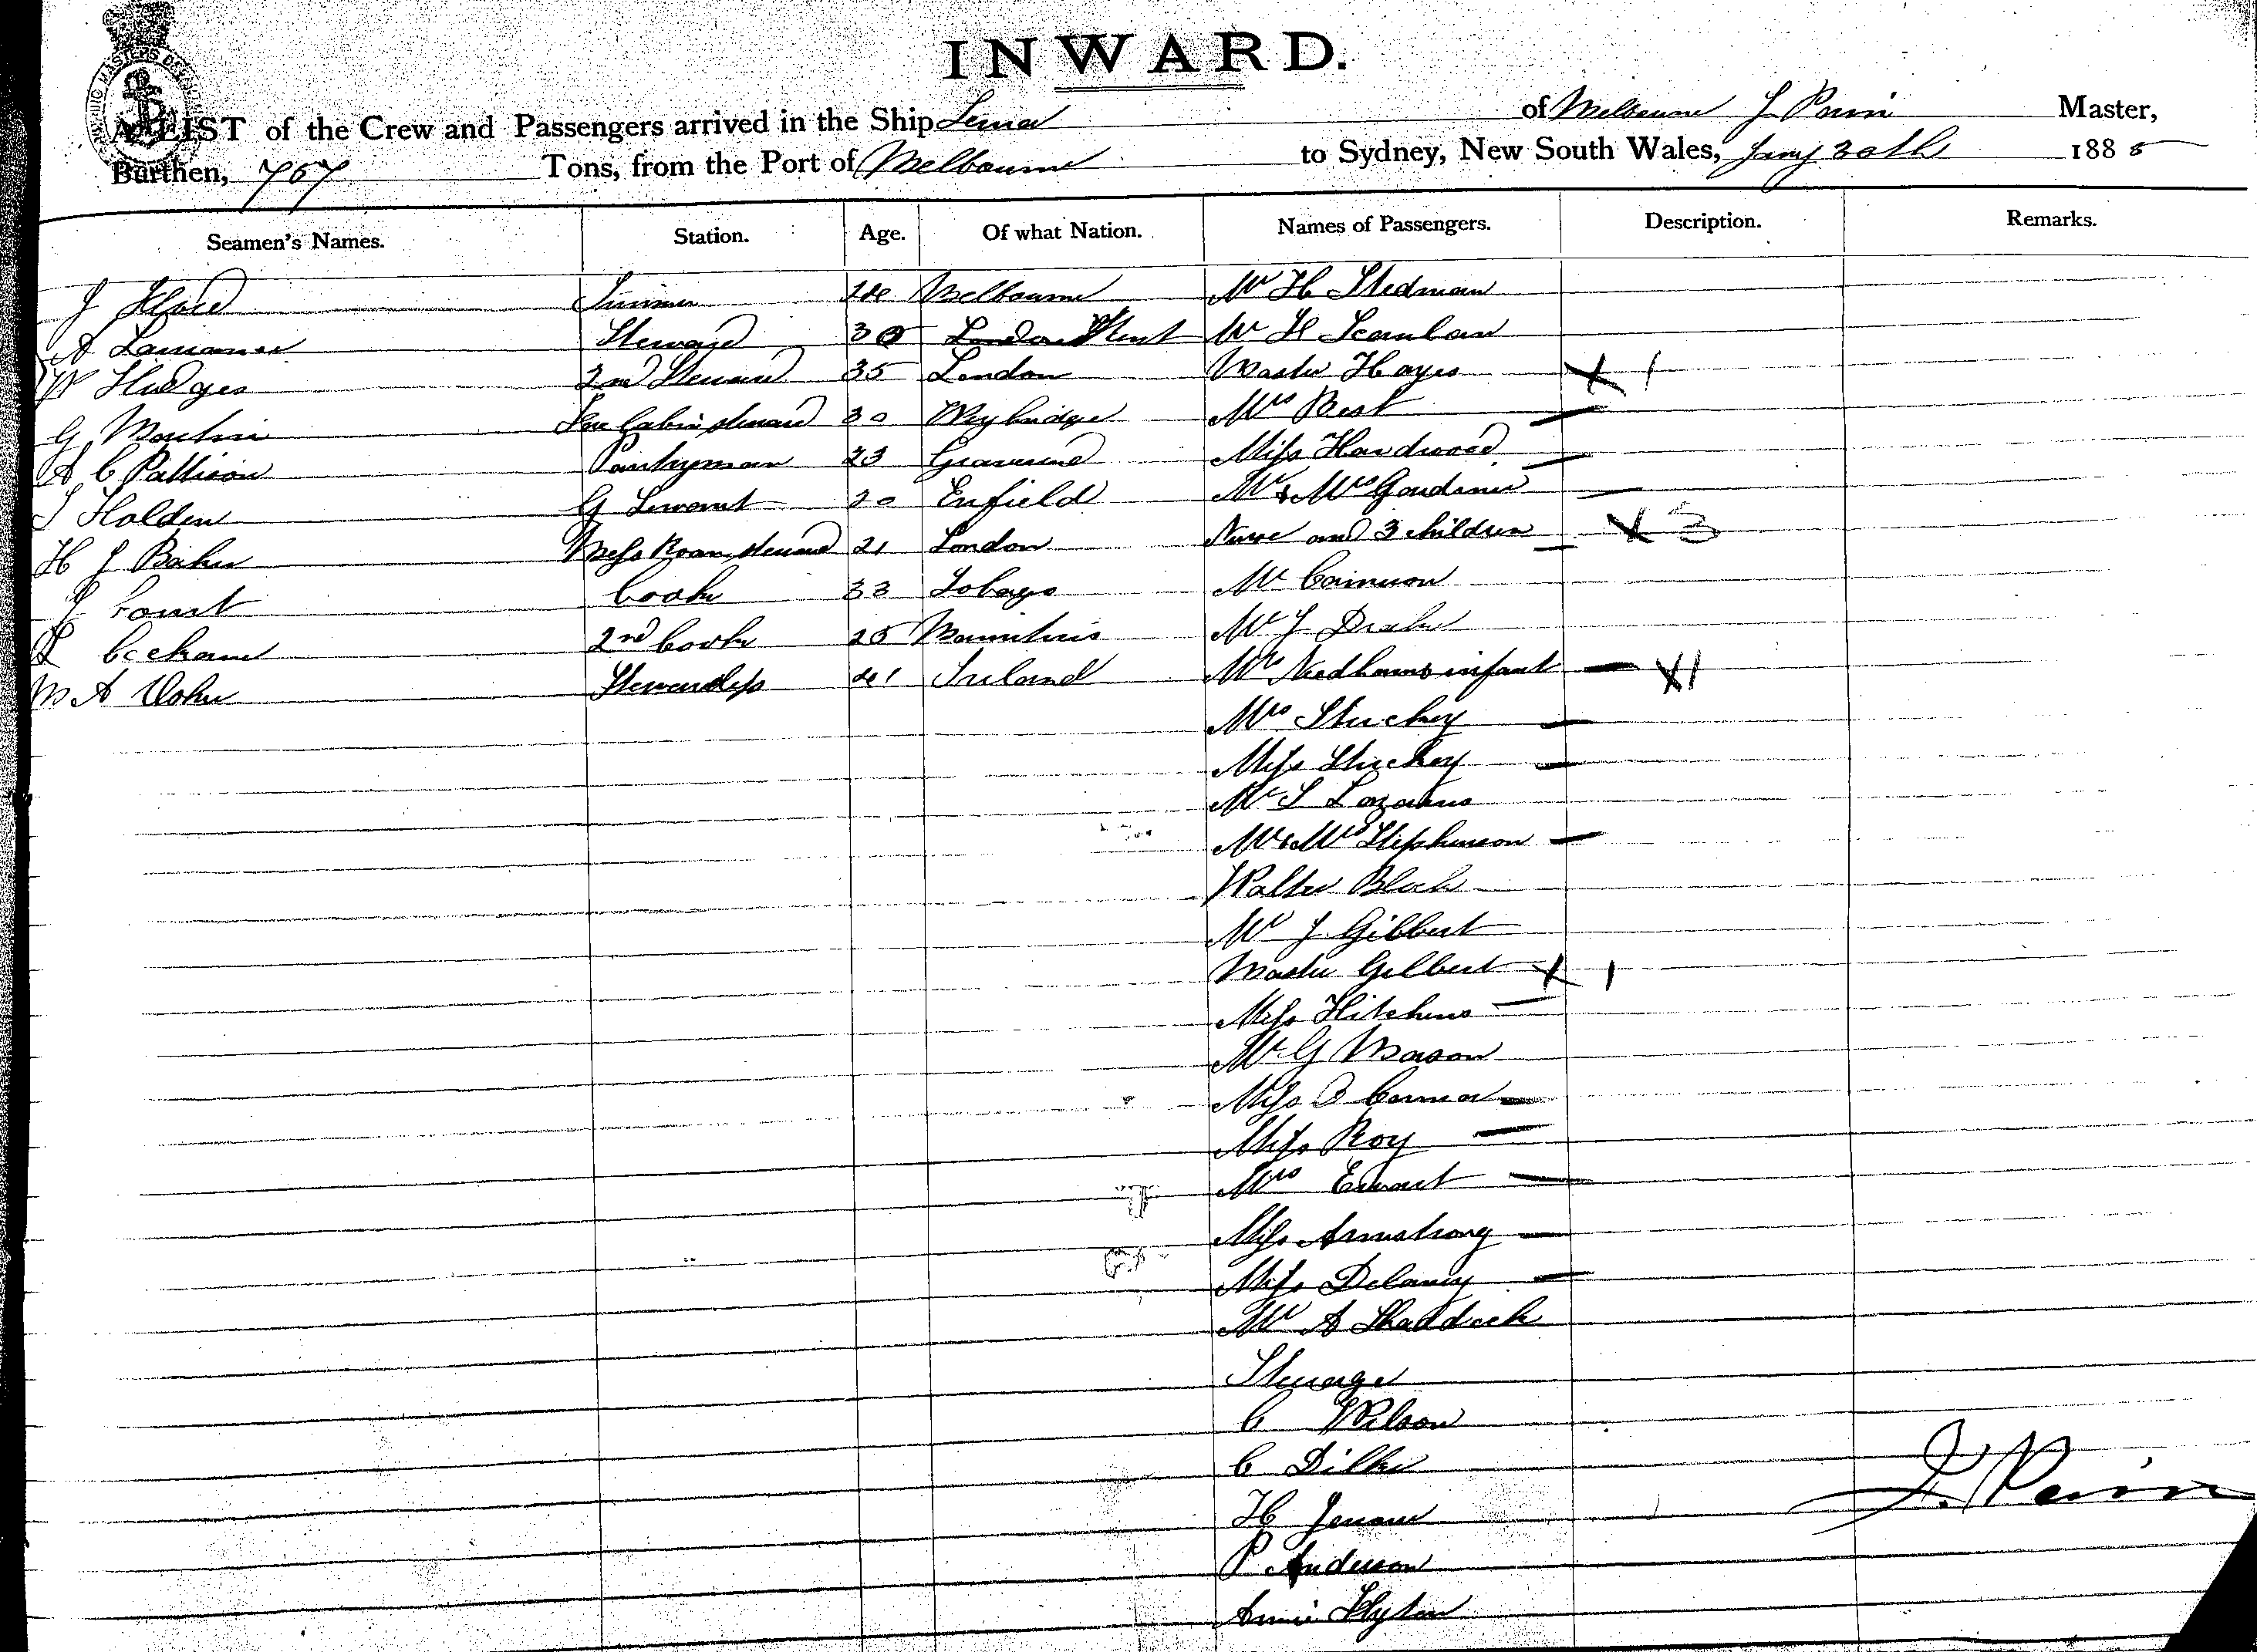 INWARD.
A LIST of the Crew and Passengers arrived in the Ship of Melbourne J Master,
Burthen, 767 Tons, from the Port of Melbourne to Sydney, New South Wales, Jany 20th 1885
Seamen's Names. Station. Age. Of what Nation. Names of Passengers. Description. Remarks.
J Melbourne Mr H Stedman
A Steward 30 London Mr H Scanlan
W Hudges 2nd Steward 35 London Master Hayes X 1
G Fore Cabin Steward 30 Weybridge Mrs Best
A C Pattison Pantryman 23 Gravesend Miss Hardwood
Holden G Servant 20 Enfield Mr & Mrs Gardiner
H J Baker Mess Room Steward 21 London Nurse and 3 children X 3
J Court Cook 33 Tobago Mr Cameron
2nd Cook 25 Mauritius Mr J Drake
M A Stewardess 41 Ireland Mrs Needham & infant X 1
Mrs Stuckey
Miss Stuckey
Mr S Lazarus
Mr & Mrs Stephenson
Walter Black
Mr J Gilbert
Master Gilbert X 1
Miss Hitchins
Mr G Mason
Miss O Connor
Miss Roy
Mrs Ewart
Miss Armstrong
Miss Delaney
Mr A Shaddock
Steerage
C Wilson
C Dilke
H
P Anderson
Annie